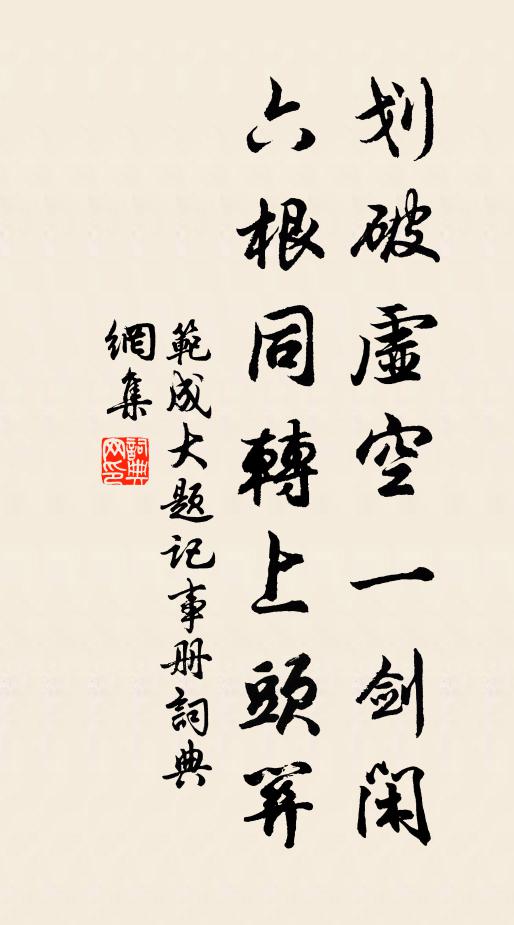 划破虛空一劍閑
六根同轉上頭關
範成大題記事册詞典
網集
詞典网印